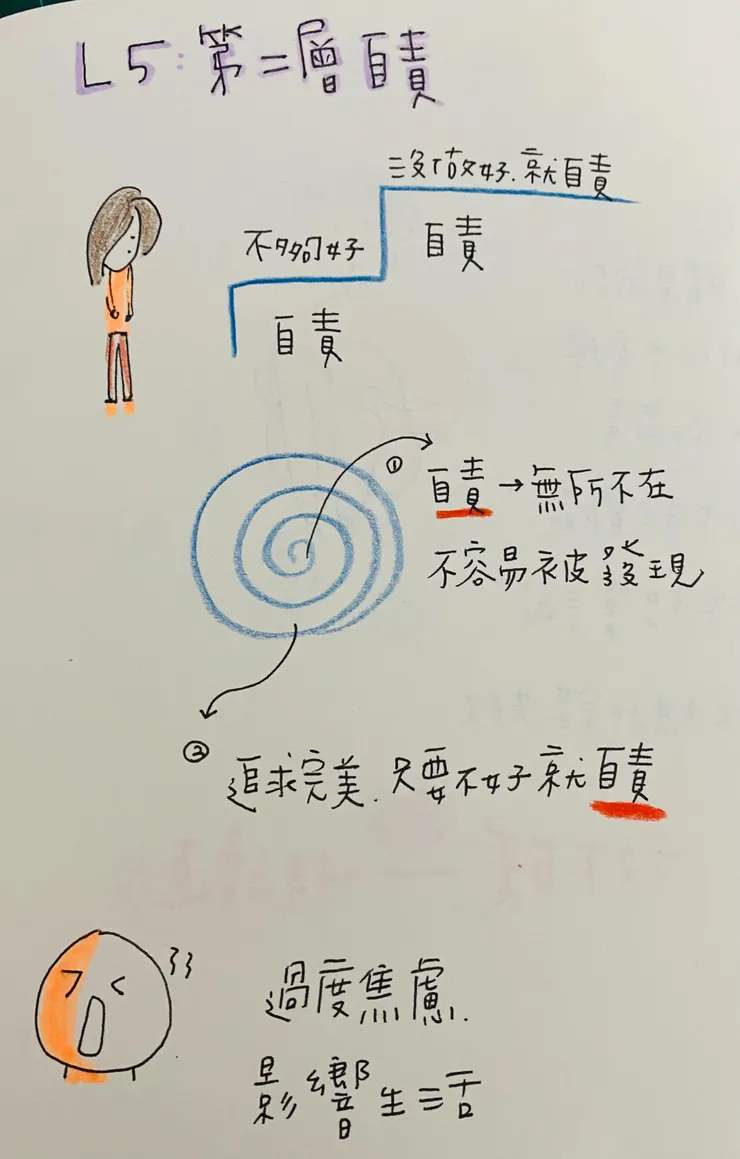 L5:第二層自責
沒做好.就自責
不夠好
自責
自責
① 自責→無所不在
不容易被發現
② 追求完美.只要不好就自責
過度焦慮.
影響生活